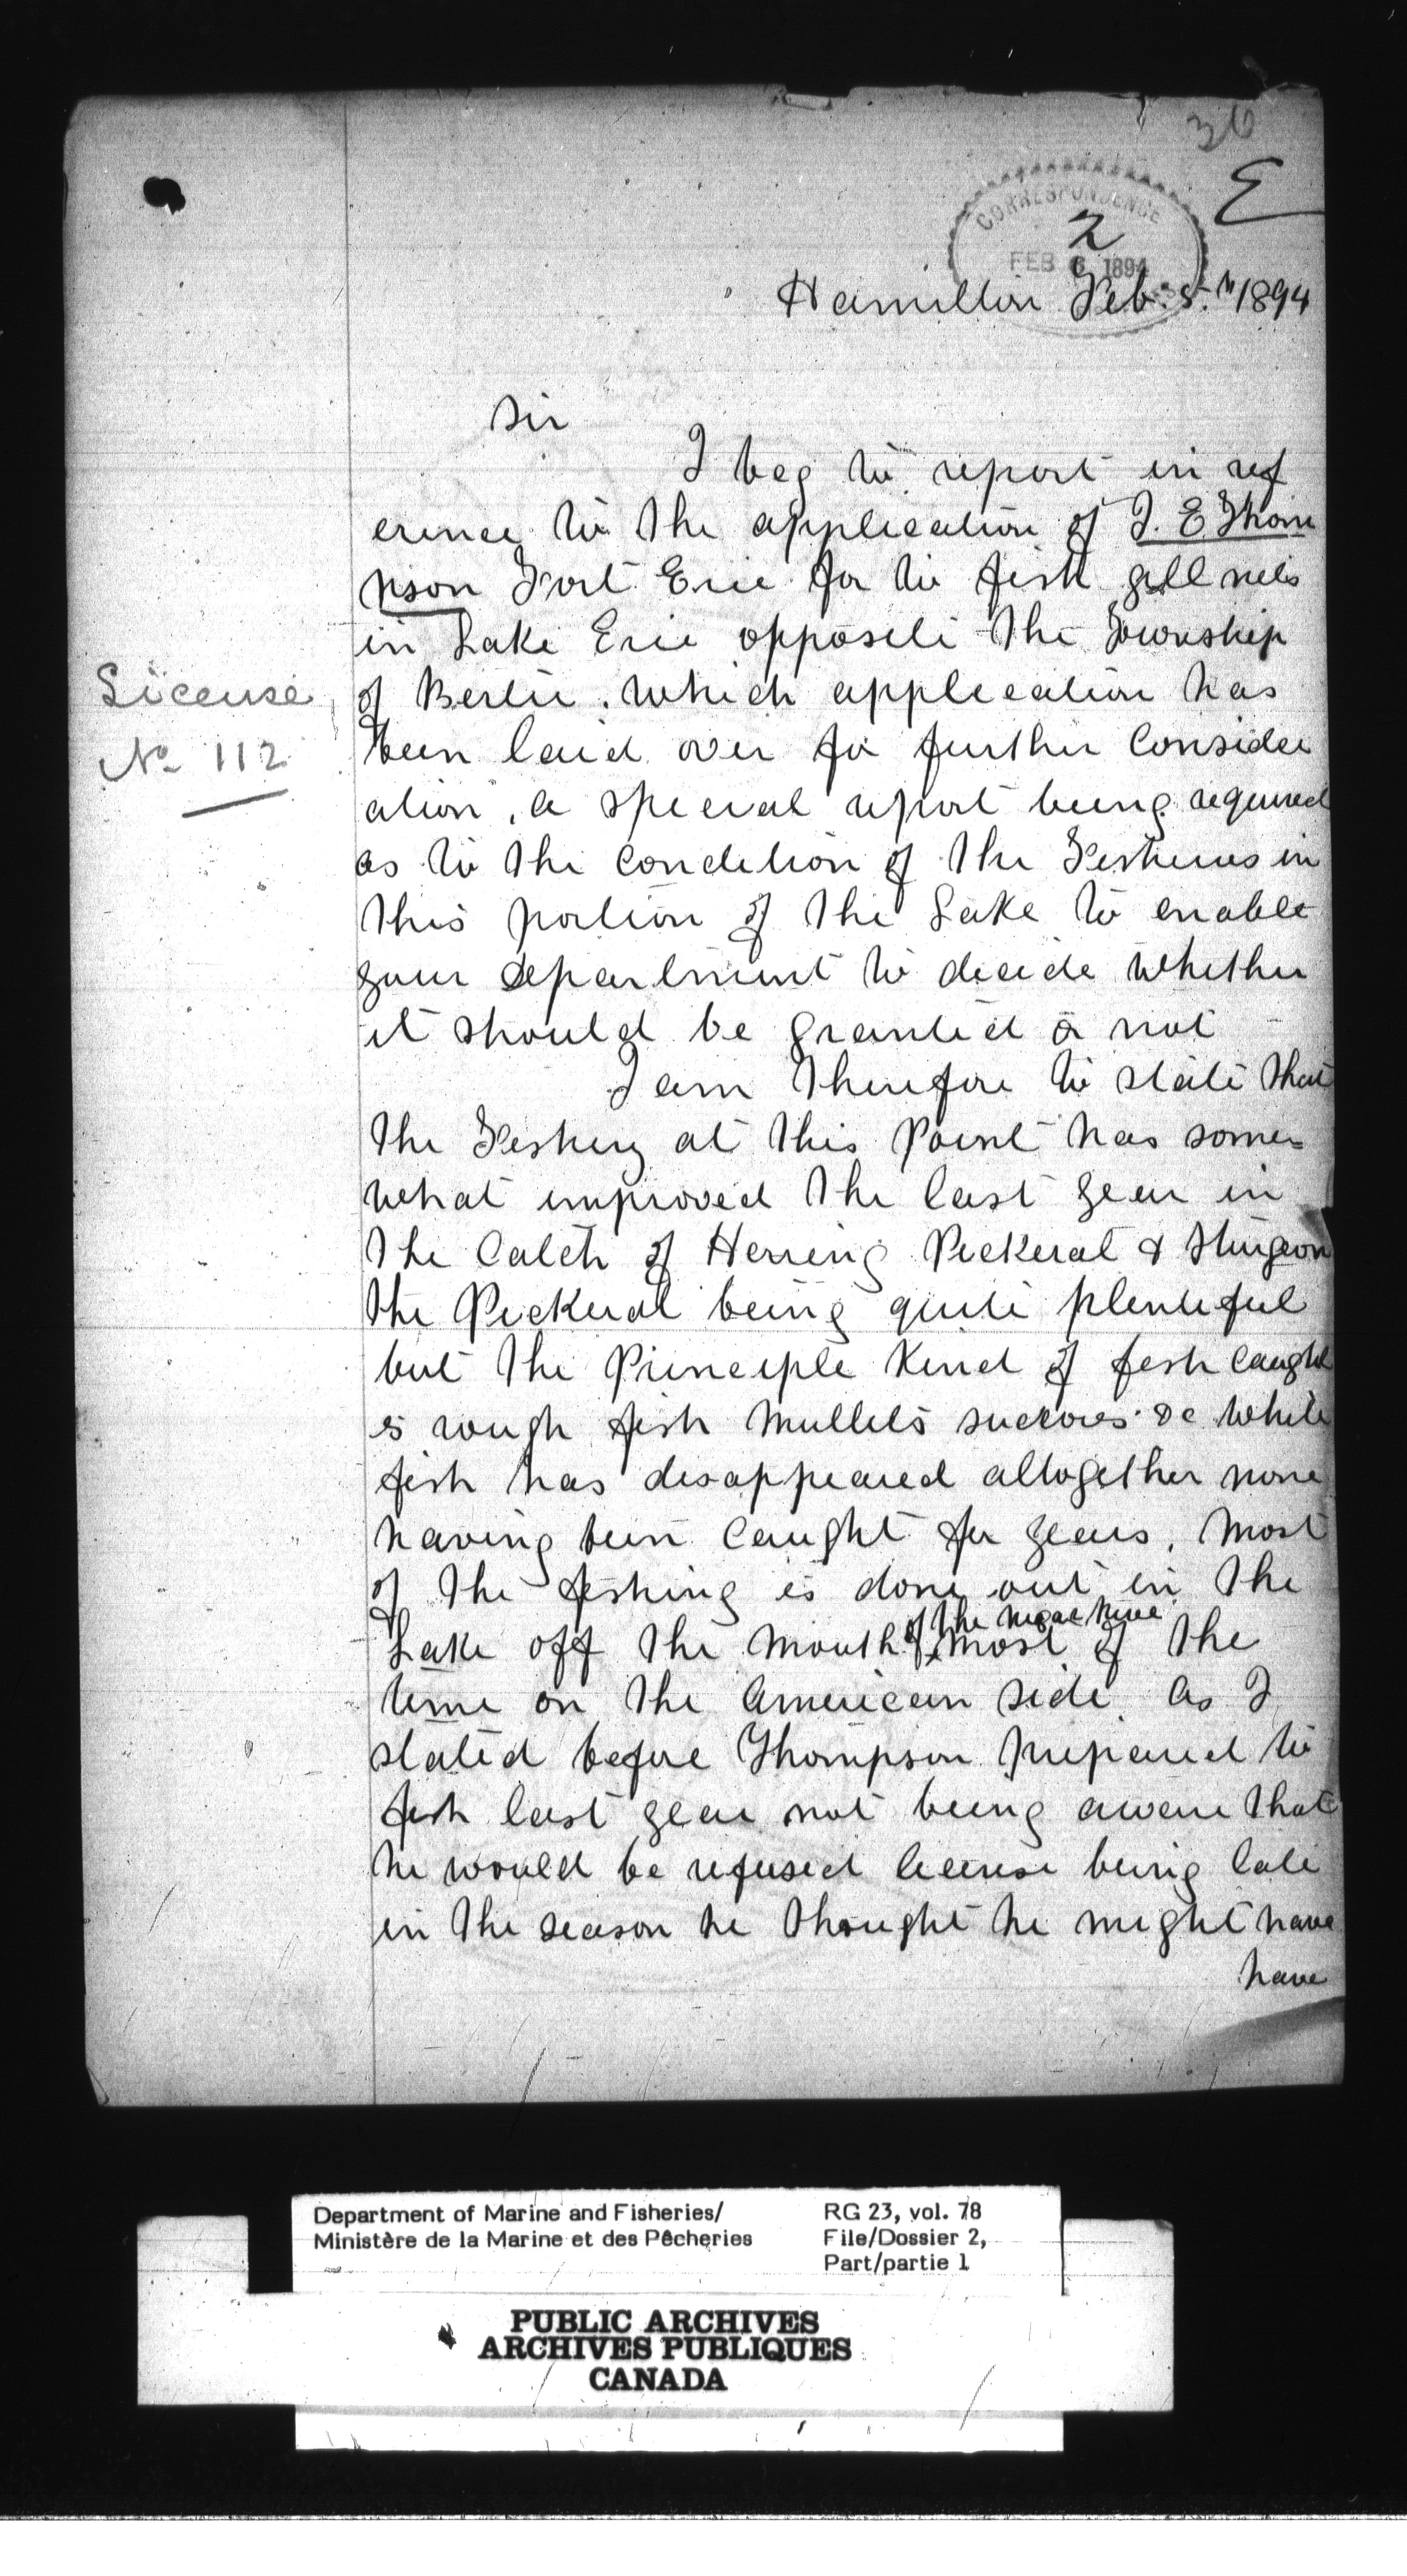 36
E
CORRESPONDENCE
2
FEB 6 1894
Hamilton Feb. 5th 1894
Sir
I beg to report in ref
erence to the application of J. E Thom
pson Fort Erie for to fish gill nets
in Lake Erie opposite the Township
of Bertie. which application has
License
No 112
been laid over for further Consider
ation, a special report being required
as to the condition of the Fisheries in
this portion of the Lake to enable
your department to decide whether
it should be granted or not
I am therefore to state that
the Fishery at this Point has some-
what improved the last year in
the Catch of Herring Pickeral & Sturgeon
the Pickeral being quite plentiful
but the Principle Kind of fish caught
is rough fish Mullets suckers &c White
fish has disappeared altogether none
having been caught for years. Most
of the fishing is done out in the
of the River
Lake off the Mouth most of the
time on the American side. As I
stated before Thompson prepared to
fish last year not being aware that
he would be refused license being late
in the season he thought he might have
have
Department of Marine and Fisheries/
Ministère de la Marine et des Pêcheries
RG 23, vol. 78
File/Dossier 2,
Part/partie 1
PUBLIC ARCHIVES
ARCHIVES PUBLIQUES
CANADA